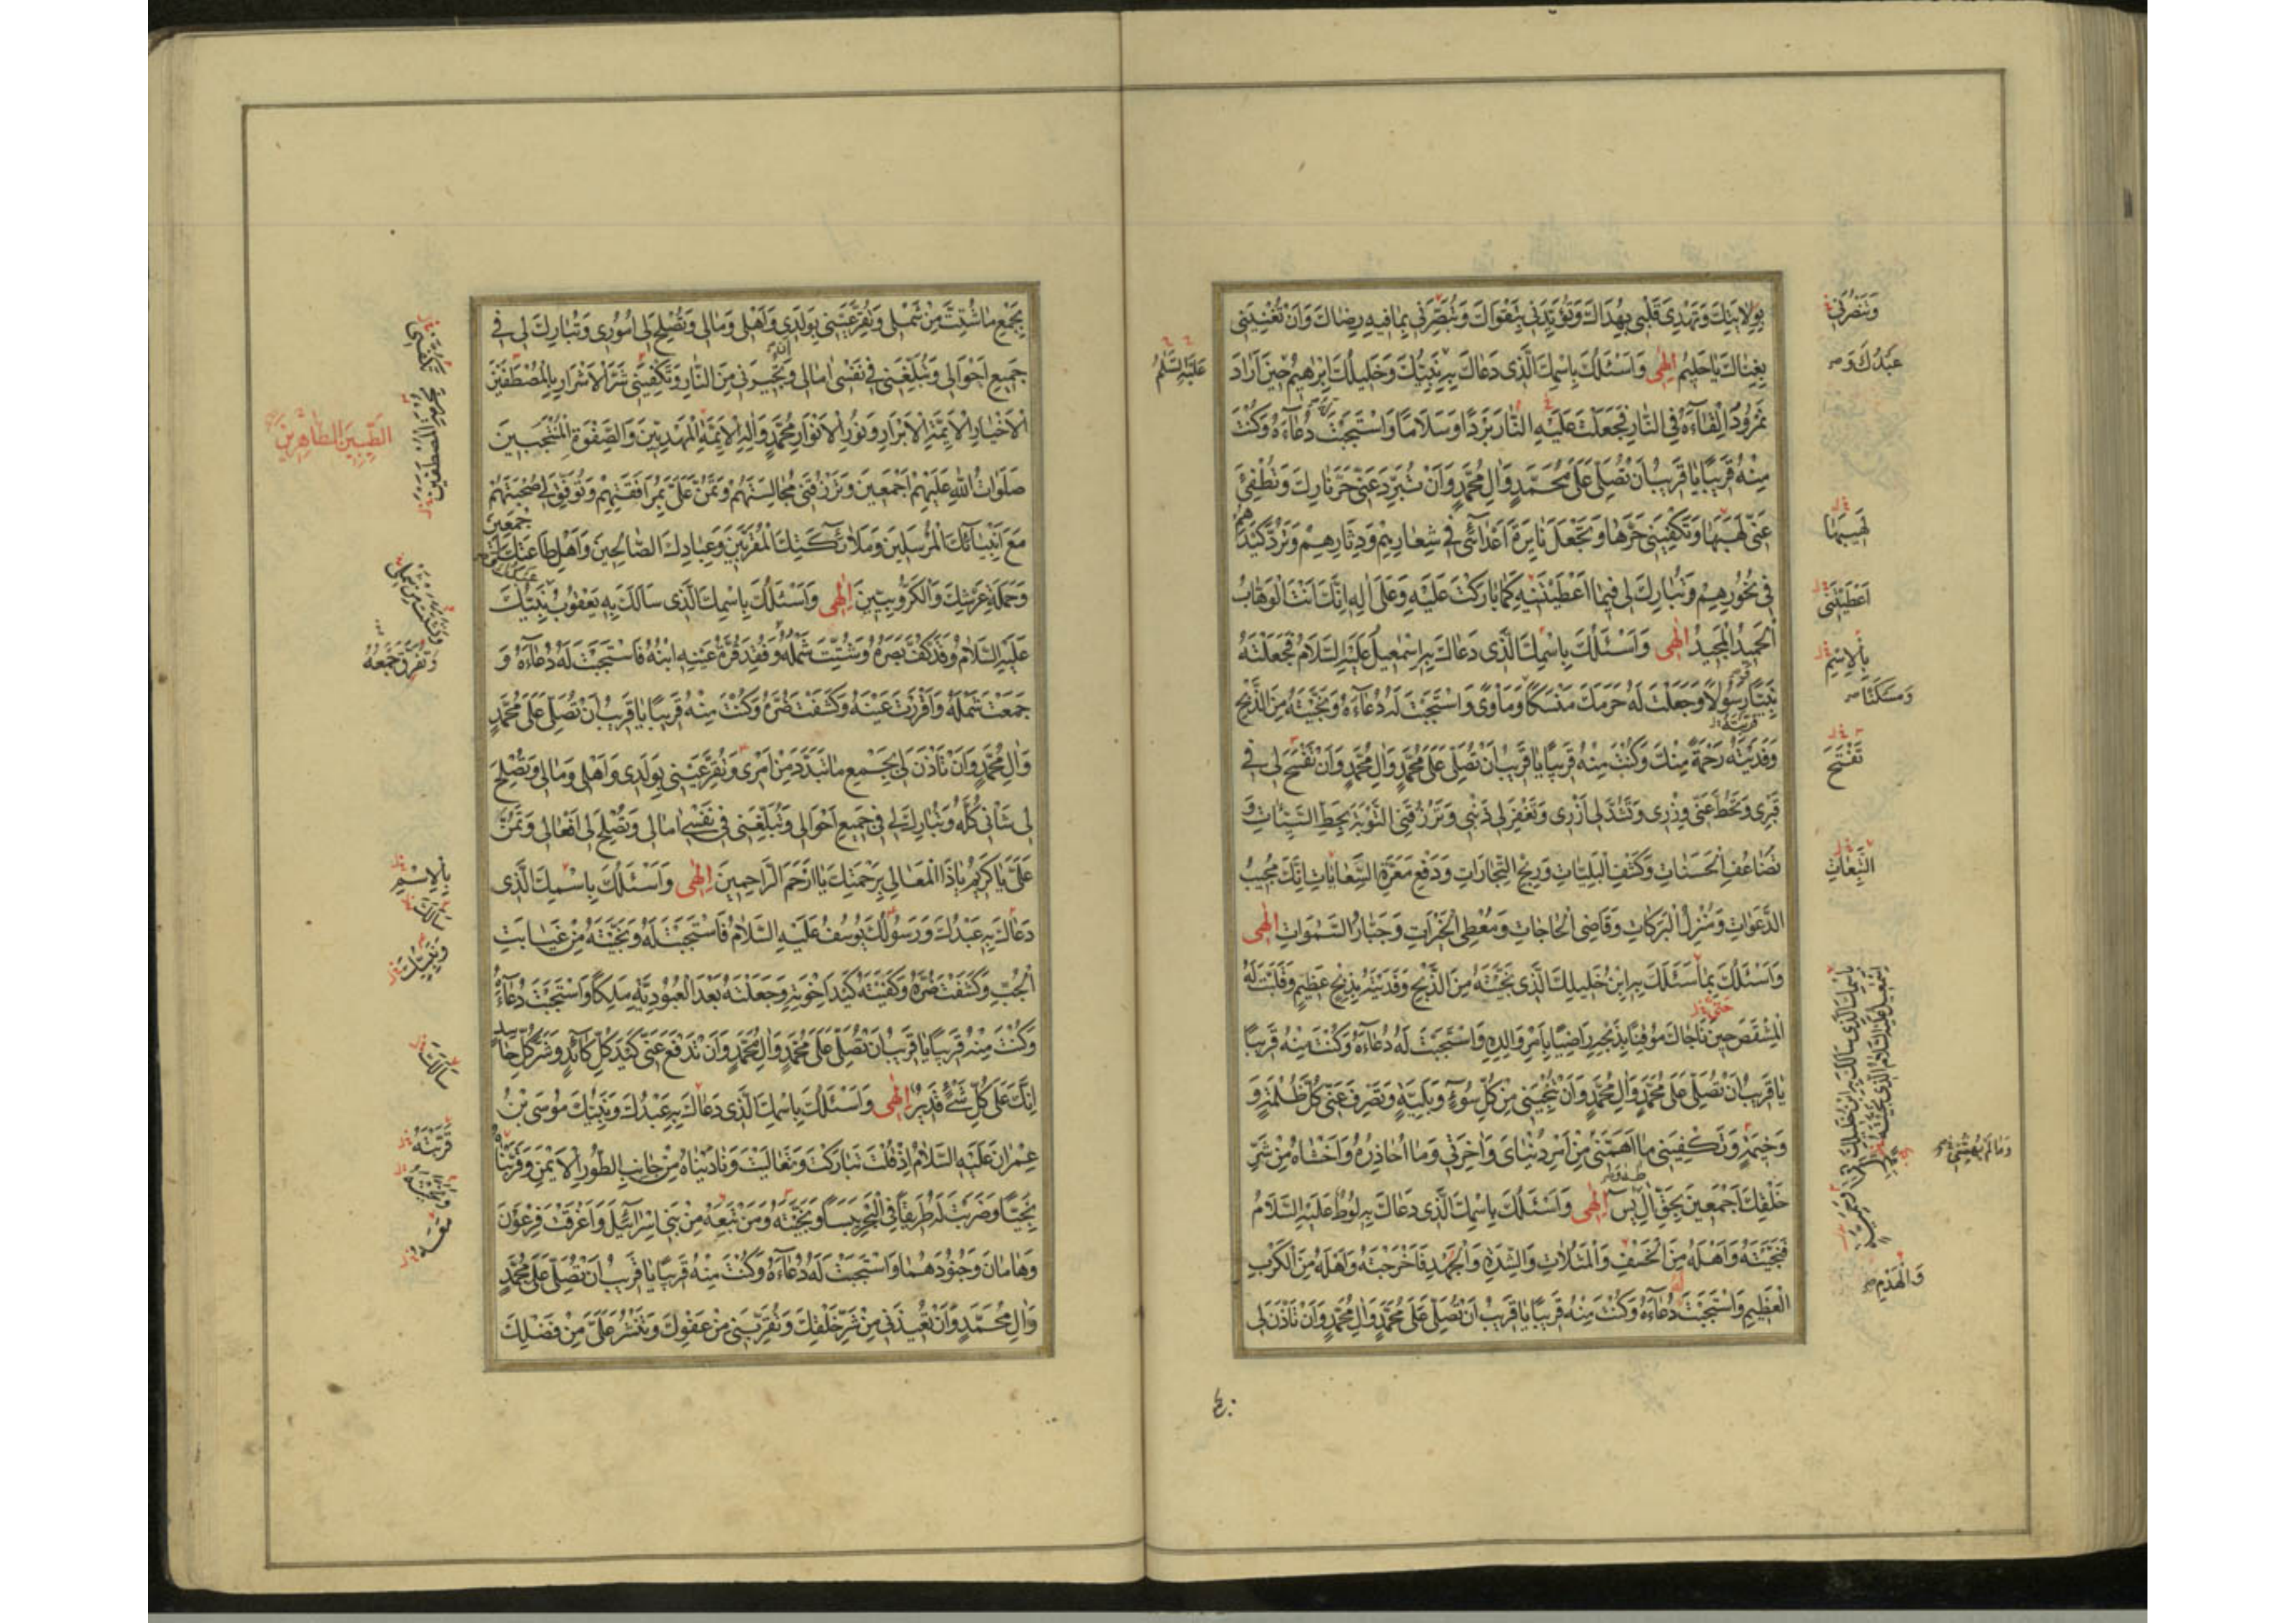 بِوِلَايَتِكَ وَتَهْدِيَ قَلْبِي بِهُدَاكَ وَتُؤَيِّدَنِي بِتَقْوَاكَ وَتُبَصِّرَنِي بِمَا فِيهِ رِضَاكَ وَأَنْ تُغْنِيَنِي
بِغِنَاكَ يَا حَلِيمُ إِلٰهِي وَاَسْئَلُكَ بِاسْمِكَ الَّذِي دَعَاكَ بِهِ نَبِيُّكَ وَخَلِيلُكَ اِبْرٰهِيمُ حِينَ اَرَادَ
نَمْرُودُ اِلْقَاءَهُ فِي النَّارِ فَجَعَلْتَ عَلَيْهِ النَّارَ بَرْدًا وَسَلَامًا وَاسْتَجَبْتَ دُعَآءَهُ وَكُنْتَ
مِنْهُ قَرِيبًا يَا قَرِيبُ اَنْ تُصَلِّيَ عَلَى مُحَمَّدٍ وَاٰلِ مُحَمَّدٍ وَاَنْ تُبَرِّدَ عَنِّي حَرَّ نَارِكَ وَتُطْفِئَ
عَنِّي لَهَبَهَا وَتَكْفِيَنِي حَرَّهَا وَتَجْعَلَ نَايِرَةَ اَعْدَآئِي فِي شِعَارِهِمْ وَدِثَارِهِمْ وَتَرُدَّ كَيْدَهُمْ
فِي نُحُورِهِمْ وَتُبَارِكَ لِي فِيمَا اَعْطَيْتَنِيهِ كَمَا بَارَكْتَ عَلَيْهِ وَعَلَى اٰلِهِ اِنَّكَ اَنْتَ الْوَهَّابُ
الْحَمِيدُ الْمَجِيدُ اِلٰهِي وَاَسْئَلُكَ بِاسْمِكَ الَّذِي دَعَاكَ بِهِ اِسْمٰعِيلُ عَلَيْهِ السَّلَامُ فَجَعَلْتَهُ
نَبِيًّا رَسُولًا وَجَعَلْتَ لَهُ حَرَمَكَ مَنْسَكًا وَمَاْوًى وَاسْتَجَبْتَ لَهُ دُعَآءَهُ وَنَجَّيْتَهُ مِنَ الذَّبْحِ
وَفَدَيْتَهُ رَحْمَةً مِنْكَ وَكُنْتَ مِنْهُ قَرِيبًا يَا قَرِيبُ اَنْ تُصَلِّيَ عَلَى مُحَمَّدٍ وَاٰلِ مُحَمَّدٍ وَاَنْ تَفْسَحَ لِي فِي
قَبْرِي وَتَحُطَّ عَنِّي وِزْرِي وَتَشُدَّ لِي اَزْرِي وَتَغْفِرَ لِي ذَنْبِي وَتَرْزُقَنِي التَّوْبَةَ بِحَطِّ السَّيِّئَاتِ وَ
تَضَاعُفِ الْحَسَنَاتِ وَكَشْفِ الْبَلِيَّاتِ وَرِبْحِ التِّجَارَاتِ وَدَفْعِ مَعَرَّةِ السِّعَايَاتِ اِنَّكَ مُجِيبُ
الدَّعَوَاتِ وَمُنْزِلُ الْبَرَكَاتِ وَقَاضِي الْحَاجَاتِ وَمُعْطِي الْخَيْرَاتِ وَجَبَّارُ السَّمٰوَاتِ اِلٰهِي
وَاَسْئَلُكَ بِمَا سَئَلَكَ بِهِ ابْنُ خَلِيلِكَ الَّذِي نَجَّيْتَهُ مِنَ الذَّبْحِ وَفَدَيْتَهُ بِذِبْحٍ عَظِيمٍ وَقَلَبْتَ لَهُ
الْمِشْقَصَ حِينَ نَاجَاكَ مُوقِنًا بِذَبْحِهِ رَاضِيًا بِاَمْرِ وَالِدِهِ وَاسْتَجَبْتَ لَهُ دُعَآءَهُ وَكُنْتَ مِنْهُ قَرِيبًا
يَا قَرِيبُ اَنْ تُصَلِّيَ عَلَى مُحَمَّدٍ وَاٰلِ مُحَمَّدٍ وَاَنْ تُنْجِيَنِي مِنْ كُلِّ سُوءٍ وَبَلِيَّةٍ وَتَصْرِفَ عَنِّي كُلَّ ظُلْمَةٍ وَ
وَخِيمَةٍ وَتَكْفِيَنِي مَا اَهَمَّنِي مِنْ اَمْرِ دُنْيَايَ وَاٰخِرَتِي وَمَا اُحَاذِرُهُ وَاَخْشَاهُ مِنْ شَرِّ
خَلْقِكَ اَجْمَعِينَ بِحَقِّ اٰلِ يٰسٓ اِلٰهِي وَاَسْئَلُكَ بِاسْمِكَ الَّذِي دَعَاكَ بِهِ لُوطٌ عَلَيْهِ السَّلَامُ
فَنَجَّيْتَهُ وَاَهْلَهُ مِنَ الْخَسْفِ وَالْمَثُلَاتِ وَالشِّدَّةِ وَالْجَهْدِ فَاَخْرَجْتَهُ وَاَهْلَهُ مِنَ الْكَرْبِ
الْعَظِيمِ وَاسْتَجَبْتَ دُعَآءَهُ وَكُنْتَ مِنْهُ قَرِيبًا يَا قَرِيبُ اَنْ تُصَلِّيَ عَلَى مُحَمَّدٍ وَاٰلِ مُحَمَّدٍ وَاَنْ تَاْذَنَ لِي
وَتَنْصُرَنِي
عَبْدُكَ وَ
عَلَيْهِ السَّلَامُ
لَهِيبَهَا
اَعْطَيْتَنِي
بِالْاِسْمِ
وَمَسْكَنًا
تَفْتَحَ
التَّبِعَاتِ
وَمَا لَمْ يُهِمَّنِي
وَالْهَدْمِ
بِجَمْعِ مَا شُتِّتَ مِنْ شَمْلِي وَتُقِرَّ عَيْنِي بِوَلَدِي وَاَهْلِي وَمَالِي وَتُصْلِحَ لِي اُمُورِي وَتُبَارِكَ لِي فِي
جَمِيعِ اَحْوَالِي وَتُبَلِّغَنِي فِي نَفْسِي اٰمَالِي وَتُجِيرَنِي مِنَ النَّارِ وَتَكْفِيَنِي شَرَّ الْاَشْرَارِ بِالْمُصْطَفَيْنَ
الْاَخْيَارِ الْاَئِمَّةِ الْاَبْرَارِ وَنُورِ الْاَنْوَارِ مُحَمَّدٍ وَاٰلِهِ الْاَئِمَّةِ الْمَهْدِيِّينَ وَالصَّفْوَةِ الْمُنْتَجَبِينَ
صَلَوَاتُ اللهِ عَلَيْهِمْ اَجْمَعِينَ وَتَرْزُقَنِي مُجَالَسَتَهُمْ وَتَمُنَّ عَلَيَّ بِمُرَافَقَتِهِمْ وَتُوَفِّقَ لِي صُحْبَتَهُمْ
مَعَ اَنْبِيَآئِكَ الْمُرْسَلِينَ وَمَلَائِكَتِكَ الْمُقَرَّبِينَ وَعِبَادِكَ الصَّالِحِينَ وَاَهْلِ طَاعَتِكَ اَجْمَعِينَ
وَحَمَلَةِ عَرْشِكَ وَالْكَرُّوبِيِّينَ اِلٰهِي وَاَسْئَلُكَ بِاسْمِكَ الَّذِي سَاَلَكَ بِهِ يَعْقُوبُ نَبِيُّكَ
عَلَيْهِ السَّلَامُ وَقَدْ كُفَّ بَصَرُهُ وَشُتِّتَ شَمْلُهُ وَفَقَدَ قُرَّةَ عَيْنِهِ ابْنَهُ فَاسْتَجَبْتَ لَهُ دُعَآءَهُ وَ
جَمَعْتَ شَمْلَهُ وَاَقْرَرْتَ عَيْنَهُ وَكَشَفْتَ ضُرَّهُ وَكُنْتَ مِنْهُ قَرِيبًا يَا قَرِيبُ اَنْ تُصَلِّيَ عَلَى مُحَمَّدٍ
وَاٰلِ مُحَمَّدٍ وَاَنْ تَاْذَنَ لِي بِجَمْعِ مَا تَبَدَّدَ مِنْ اَمْرِي وَتُقِرَّ عَيْنِي بِوَلَدِي وَاَهْلِي وَمَالِي وَتُصْلِحَ
لِي شَاْنِي كُلَّهُ وَتُبَارِكَ لِي فِي جَمِيعِ اَحْوَالِي وَتُبَلِّغَنِي فِي نَفْسِي اٰمَالِي وَتُصْلِحَ لِي اَفْعَالِي وَتَمُنَّ
عَلَيَّ يَا كَرِيمُ يَا ذَا الْمَعَالِي بِرَحْمَتِكَ يَا اَرْحَمَ الرَّاحِمِينَ اِلٰهِي وَاَسْئَلُكَ بِاسْمِكَ الَّذِي
دَعَاكَ بِهِ عَبْدُكَ وَرَسُولُكَ يُوسُفُ عَلَيْهِ السَّلَامُ فَاسْتَجَبْتَ لَهُ وَنَجَّيْتَهُ مِنْ غَيَابَتِ
الْجُبِّ وَكَشَفْتَ ضُرَّهُ وَكَفَيْتَهُ كَيْدَ اِخْوَتِهِ وَجَعَلْتَهُ بَعْدَ الْعُبُودِيَّةِ مَلِكًا وَاسْتَجَبْتَ دُعَآءَهُ
وَكُنْتَ مِنْهُ قَرِيبًا يَا قَرِيبُ اَنْ تُصَلِّيَ عَلَى مُحَمَّدٍ وَاٰلِ مُحَمَّدٍ وَاَنْ تَدْفَعَ عَنِّي كَيْدَ كُلِّ كَآئِدٍ وَشَرَّ كُلِّ حَاسِدٍ
اِنَّكَ عَلَى كُلِّ شَيْءٍ قَدِيرٌ اِلٰهِي وَاَسْئَلُكَ بِاسْمِكَ الَّذِي دَعَاكَ بِهِ عَبْدُكَ وَنَبِيُّكَ مُوسَى بْنُ
عِمْرَانَ عَلَيْهِ السَّلَامُ اِذْ قُلْتَ تَبَارَكْتَ وَتَعَالَيْتَ وَنَادَيْنَاهُ مِنْ جَانِبِ الطُّورِ الْاَيْمَنِ وَقَرَّبْنَاهُ
نَجِيًّا وَضَرَبْتَ لَهُ طَرِيقًا فِي الْبَحْرِ يَبَسًا وَنَجَّيْتَهُ وَمَنْ تَبِعَهُ مِنْ بَنِي اِسْرَآئِيلَ وَاَغْرَقْتَ فِرْعَوْنَ
وَهَامَانَ وَجُنُودَهُمَا وَاسْتَجَبْتَ لَهُ دُعَآءَهُ وَكُنْتَ مِنْهُ قَرِيبًا يَا قَرِيبُ اَنْ تُصَلِّيَ عَلَى مُحَمَّدٍ
وَاٰلِ مُحَمَّدٍ وَاَنْ تُعِيذَنِي مِنْ شَرِّ خَلْقِكَ وَتُقَرِّبَنِي مِنْ عَفْوِكَ وَتَنْشُرَ عَلَيَّ مِنْ فَضْلِكَ
الطَّيِّبِينَ الطَّاهِرِينَ
وَتَفَرَّقَ جَمْعُهُ
بِالْاِسْمِ
سَاَلَكَ
وَنَبِيُّكَ
سَاَلَكَ
قَرَّبْتَهُ